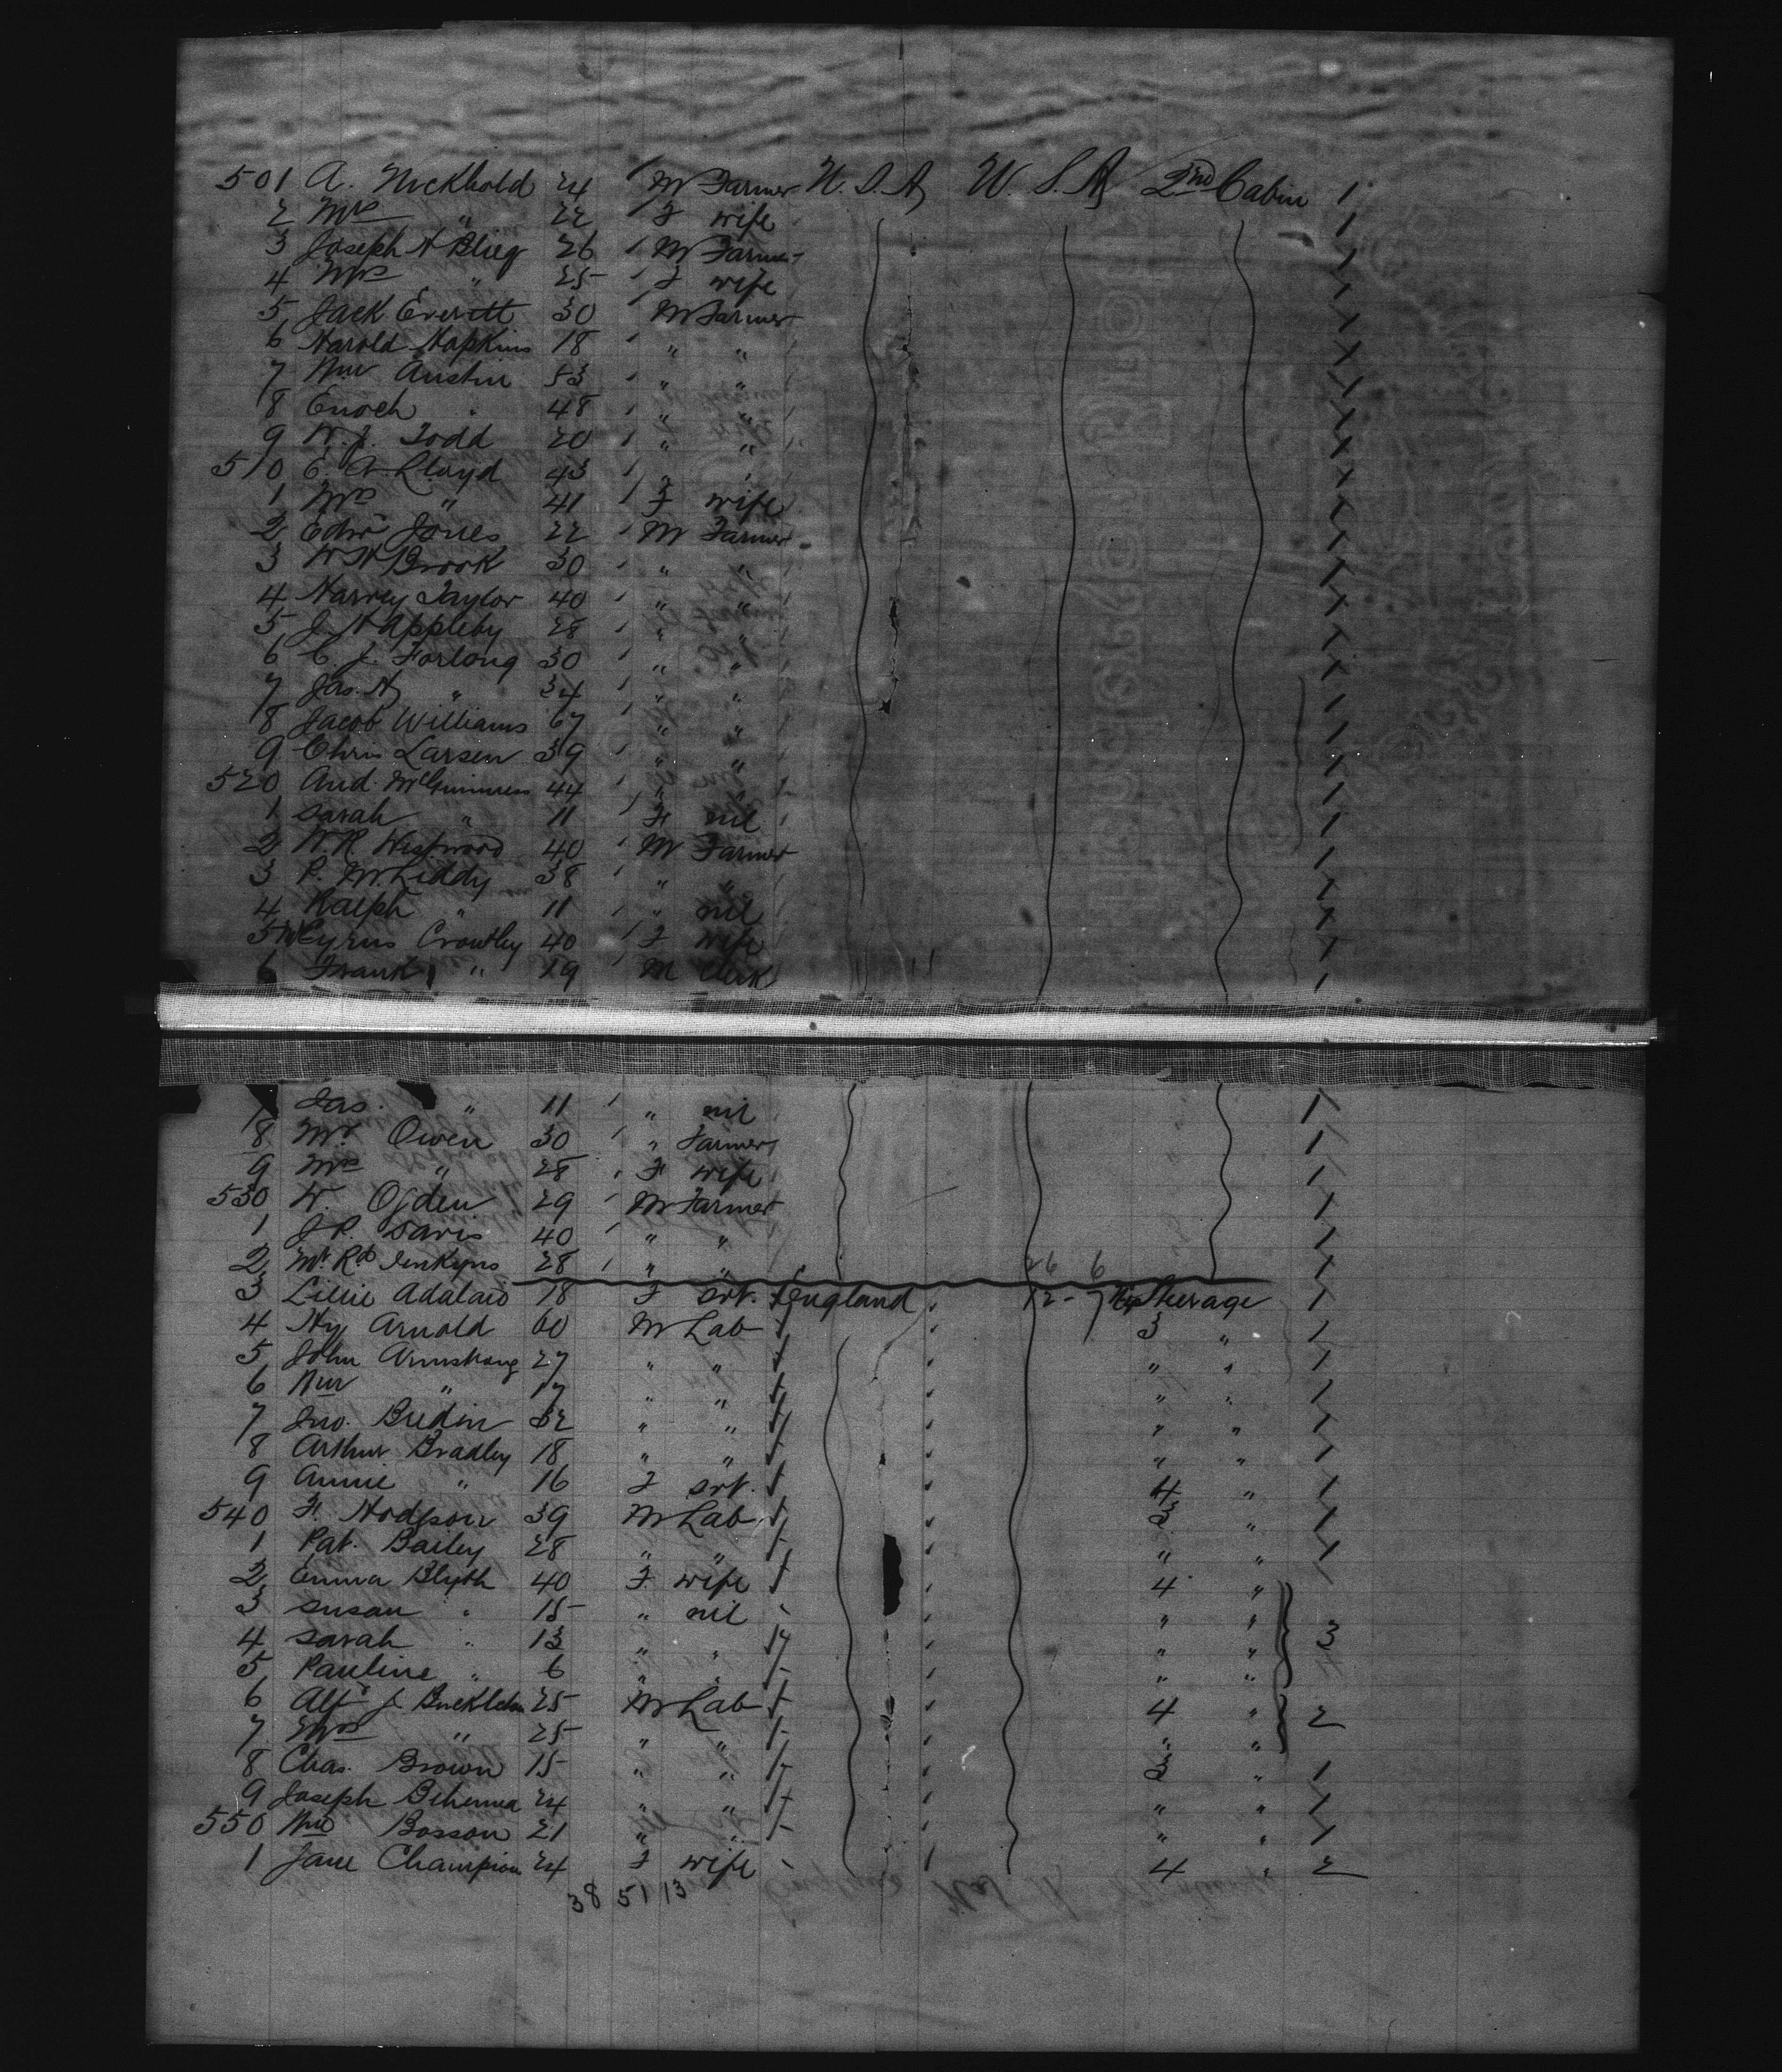 501 A. Nickhold 24 M Farmer U.S.A U.S.A 2nd Cabin 1
2 Mrs " 22 F wife 1
3 Joseph H Blieg 26 M Farmer 1
4 Mrs " 25 F wife 1
5 Jack Everett 30 M Farmer 1
6 Harold Hopkins 18 " " 1
7 Wm Austin 53 " " 1
8 Enoch " 48 " " 1
9 W. J. Todd 20 " " 1
510 E. A Lloyd 43 " " 1
1 Mrs " 41 F wife 1
2 Edw Jones 22 M Farmer 1
3 W H Brook 30 " " 1
4 Harvey Taylor 40 " " 1
5 J. H Appleby 28 " " 1
6 C. J. Forlong 30 " " 1
7 Jas. H " 34 " " 1
8 Jacob Williams 67 " " 1
9 Chris Larsen 39 " " 1
520 And. McGuinness 44 " " 1
1 Sarah " 11 F nil 1
2 W. R. Westwood 40 M Farmer 1
3 P. M. Liddy 38 " " 1
4 Ralph " 11 " nil 1
5 Cyrus Crowtley 40 F wife 1
6 Frank " 19 M Clerk 1
Jas. " 11 " nil 1
8 Mr Owen 30 " Farmer 1
9 Mrs " 28 F wife 1
530 W. Ogden 29 M Farmer 1
1 J. P. Davis 40 " " 1
2 Mr Rd Jenkyns 28 " " 26 6 1
3 Lillie Adalaid 18 F srt. England 12 - 7 Steerage 1
4 Hy Arnold 60 M Lab 3 " 1
5 John Armstrong 27 " " " " 1
6 Wm " 17 " " " " 1
7 Jno. Bredin 32 " " " " 1
8 Arthur Bradley 18 " " " " 1
9 Annie " 16 F srt. 4 " 1
540 F. Hodgson 39 M Lab 3 " 1
1 Pat. Bailey 28 " " " " 1
2 Emma Blyth 40 F. wife 4 "
3 Susan " 15 " nil " "
4 Sarah " 13 " " " " 3
5 Pauline " 6 " " " "
6 Alfd J. Buckleton 25 M Lab 4 " 2
7 Mrs " 25 " " " "
8 Chas. Brown 15 " " 3 " 1
9 Joseph Behenna 24 " " " " 1
550 Wm Bosson 21 " " " " 1
1 Jane Champion 24 F wife 4 " 2
38 51 13